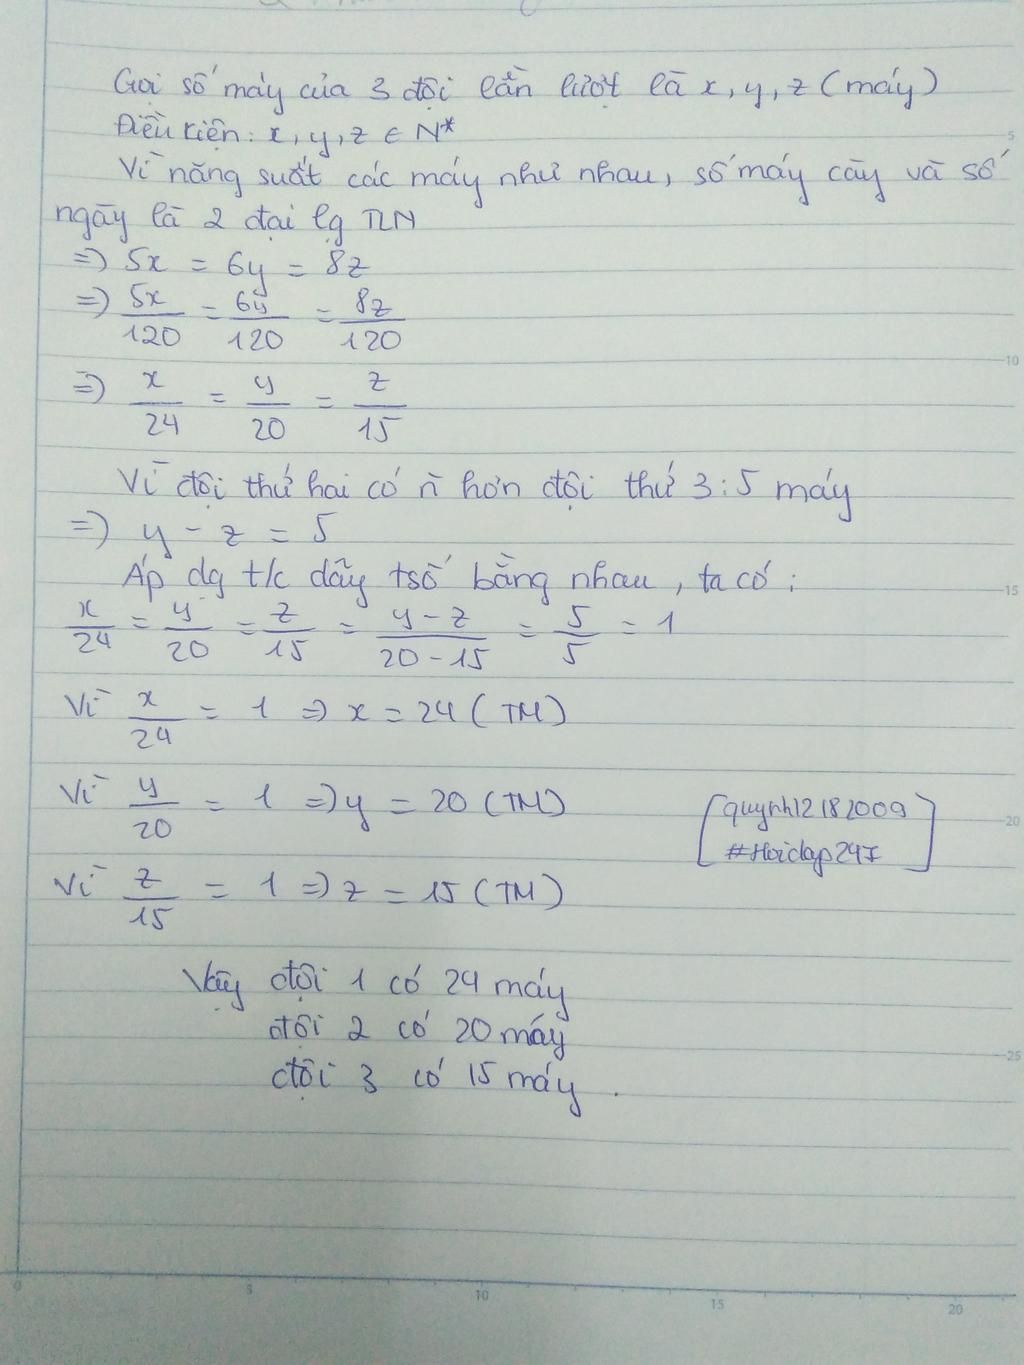 Gọi số máy của 3 đội lần lượt là x, y, z (máy)
Điều kiện: x, y, z ∈ N*
Vì năng suất các máy như nhau, số máy cày và số
ngày là 2 đại lg TLN
=> 5x = 6y = 8z
=> 5x/120 = 6y/120 = 8z/120
=> x/24 = y/20 = z/15
Vì đội thứ hai có n̄ hơn đội thứ 3: 5 máy
=> y - z = 5
Áp dg t/c dãy tsố bằng nhau, ta có:
x/24 = y/20 = z/15 = y-z/20-15 = 5/5 = 1
Vì x/24 = 1 => x = 24 (TM)
Vì y/20 = 1 => y = 20 (TM)
quynh12182009
#Hoidap247
Vì z/15 = 1 => z = 15 (TM)
Vậy đội 1 có 24 máy
đội 2 có 20 máy
đội 3 có 15 máy.
5
10
15
20
25
0 5 10 15 20